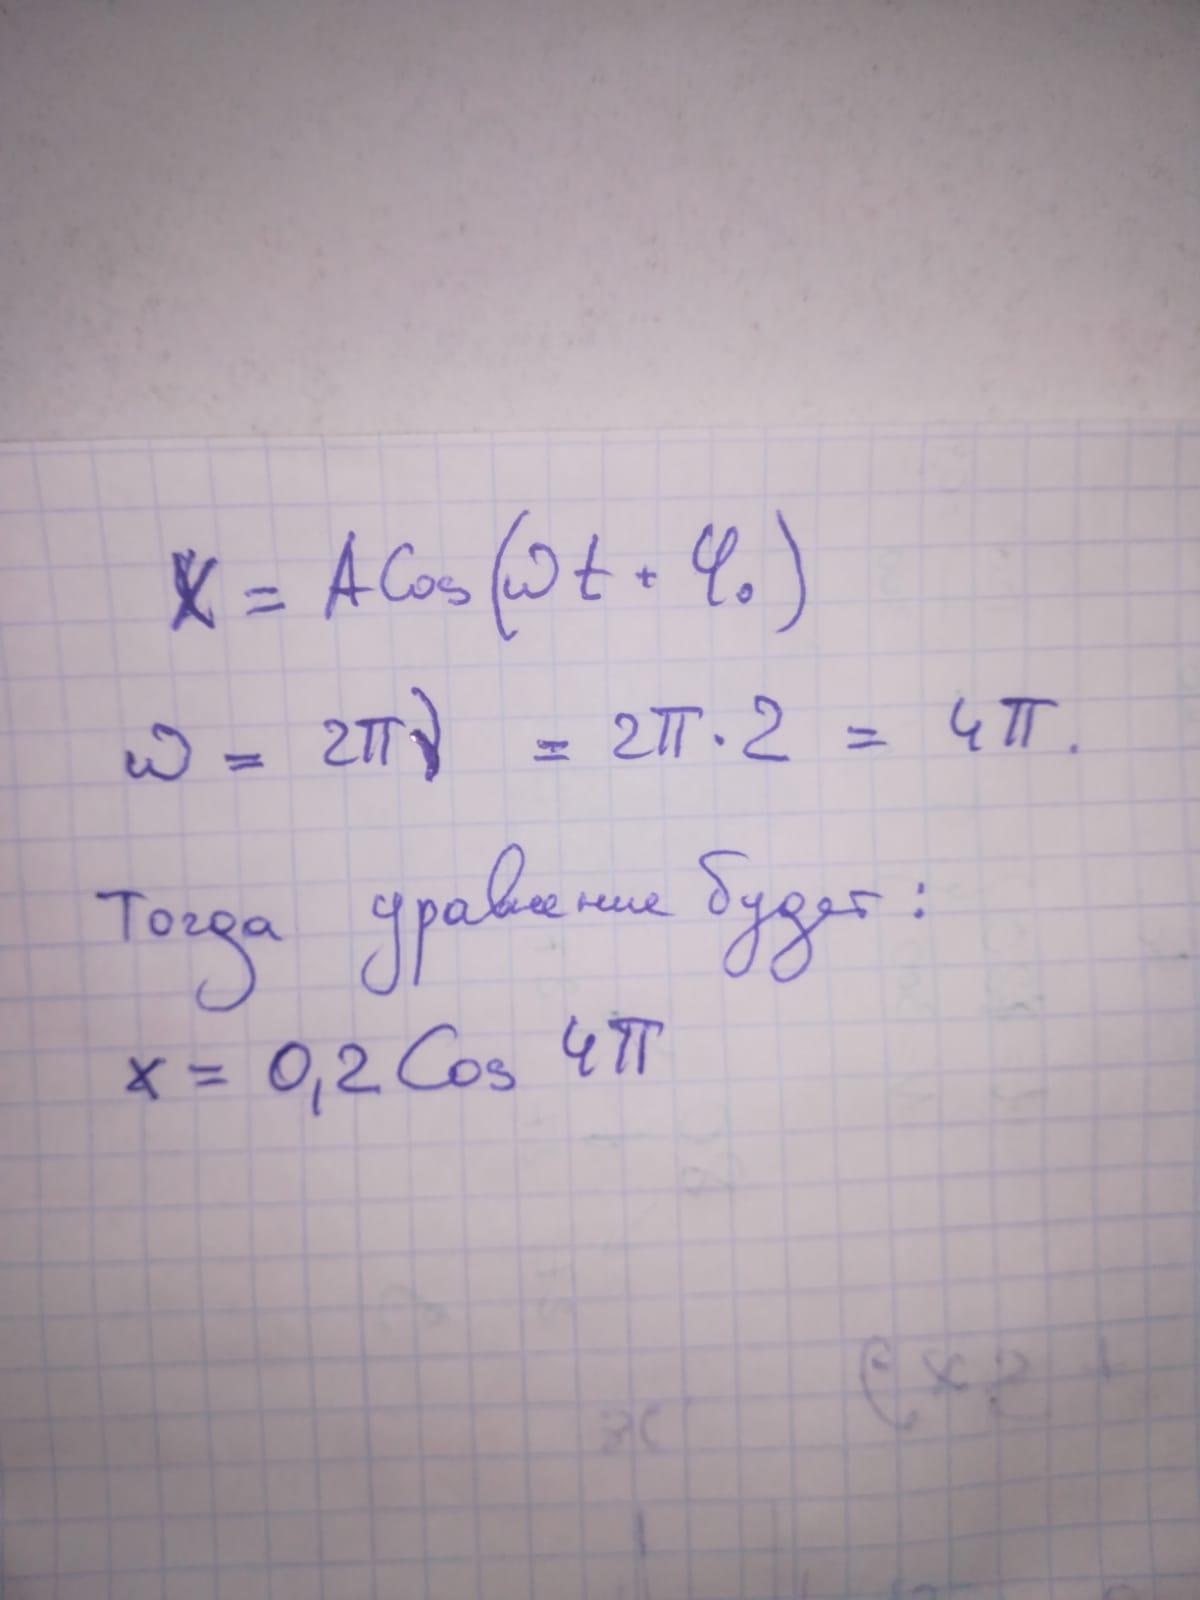 X = A Cos (ωt + φ₀)
ω = 2πν = 2π · 2 = 4π.
Тогда уравнение будет:
x = 0,2 Cos 4π